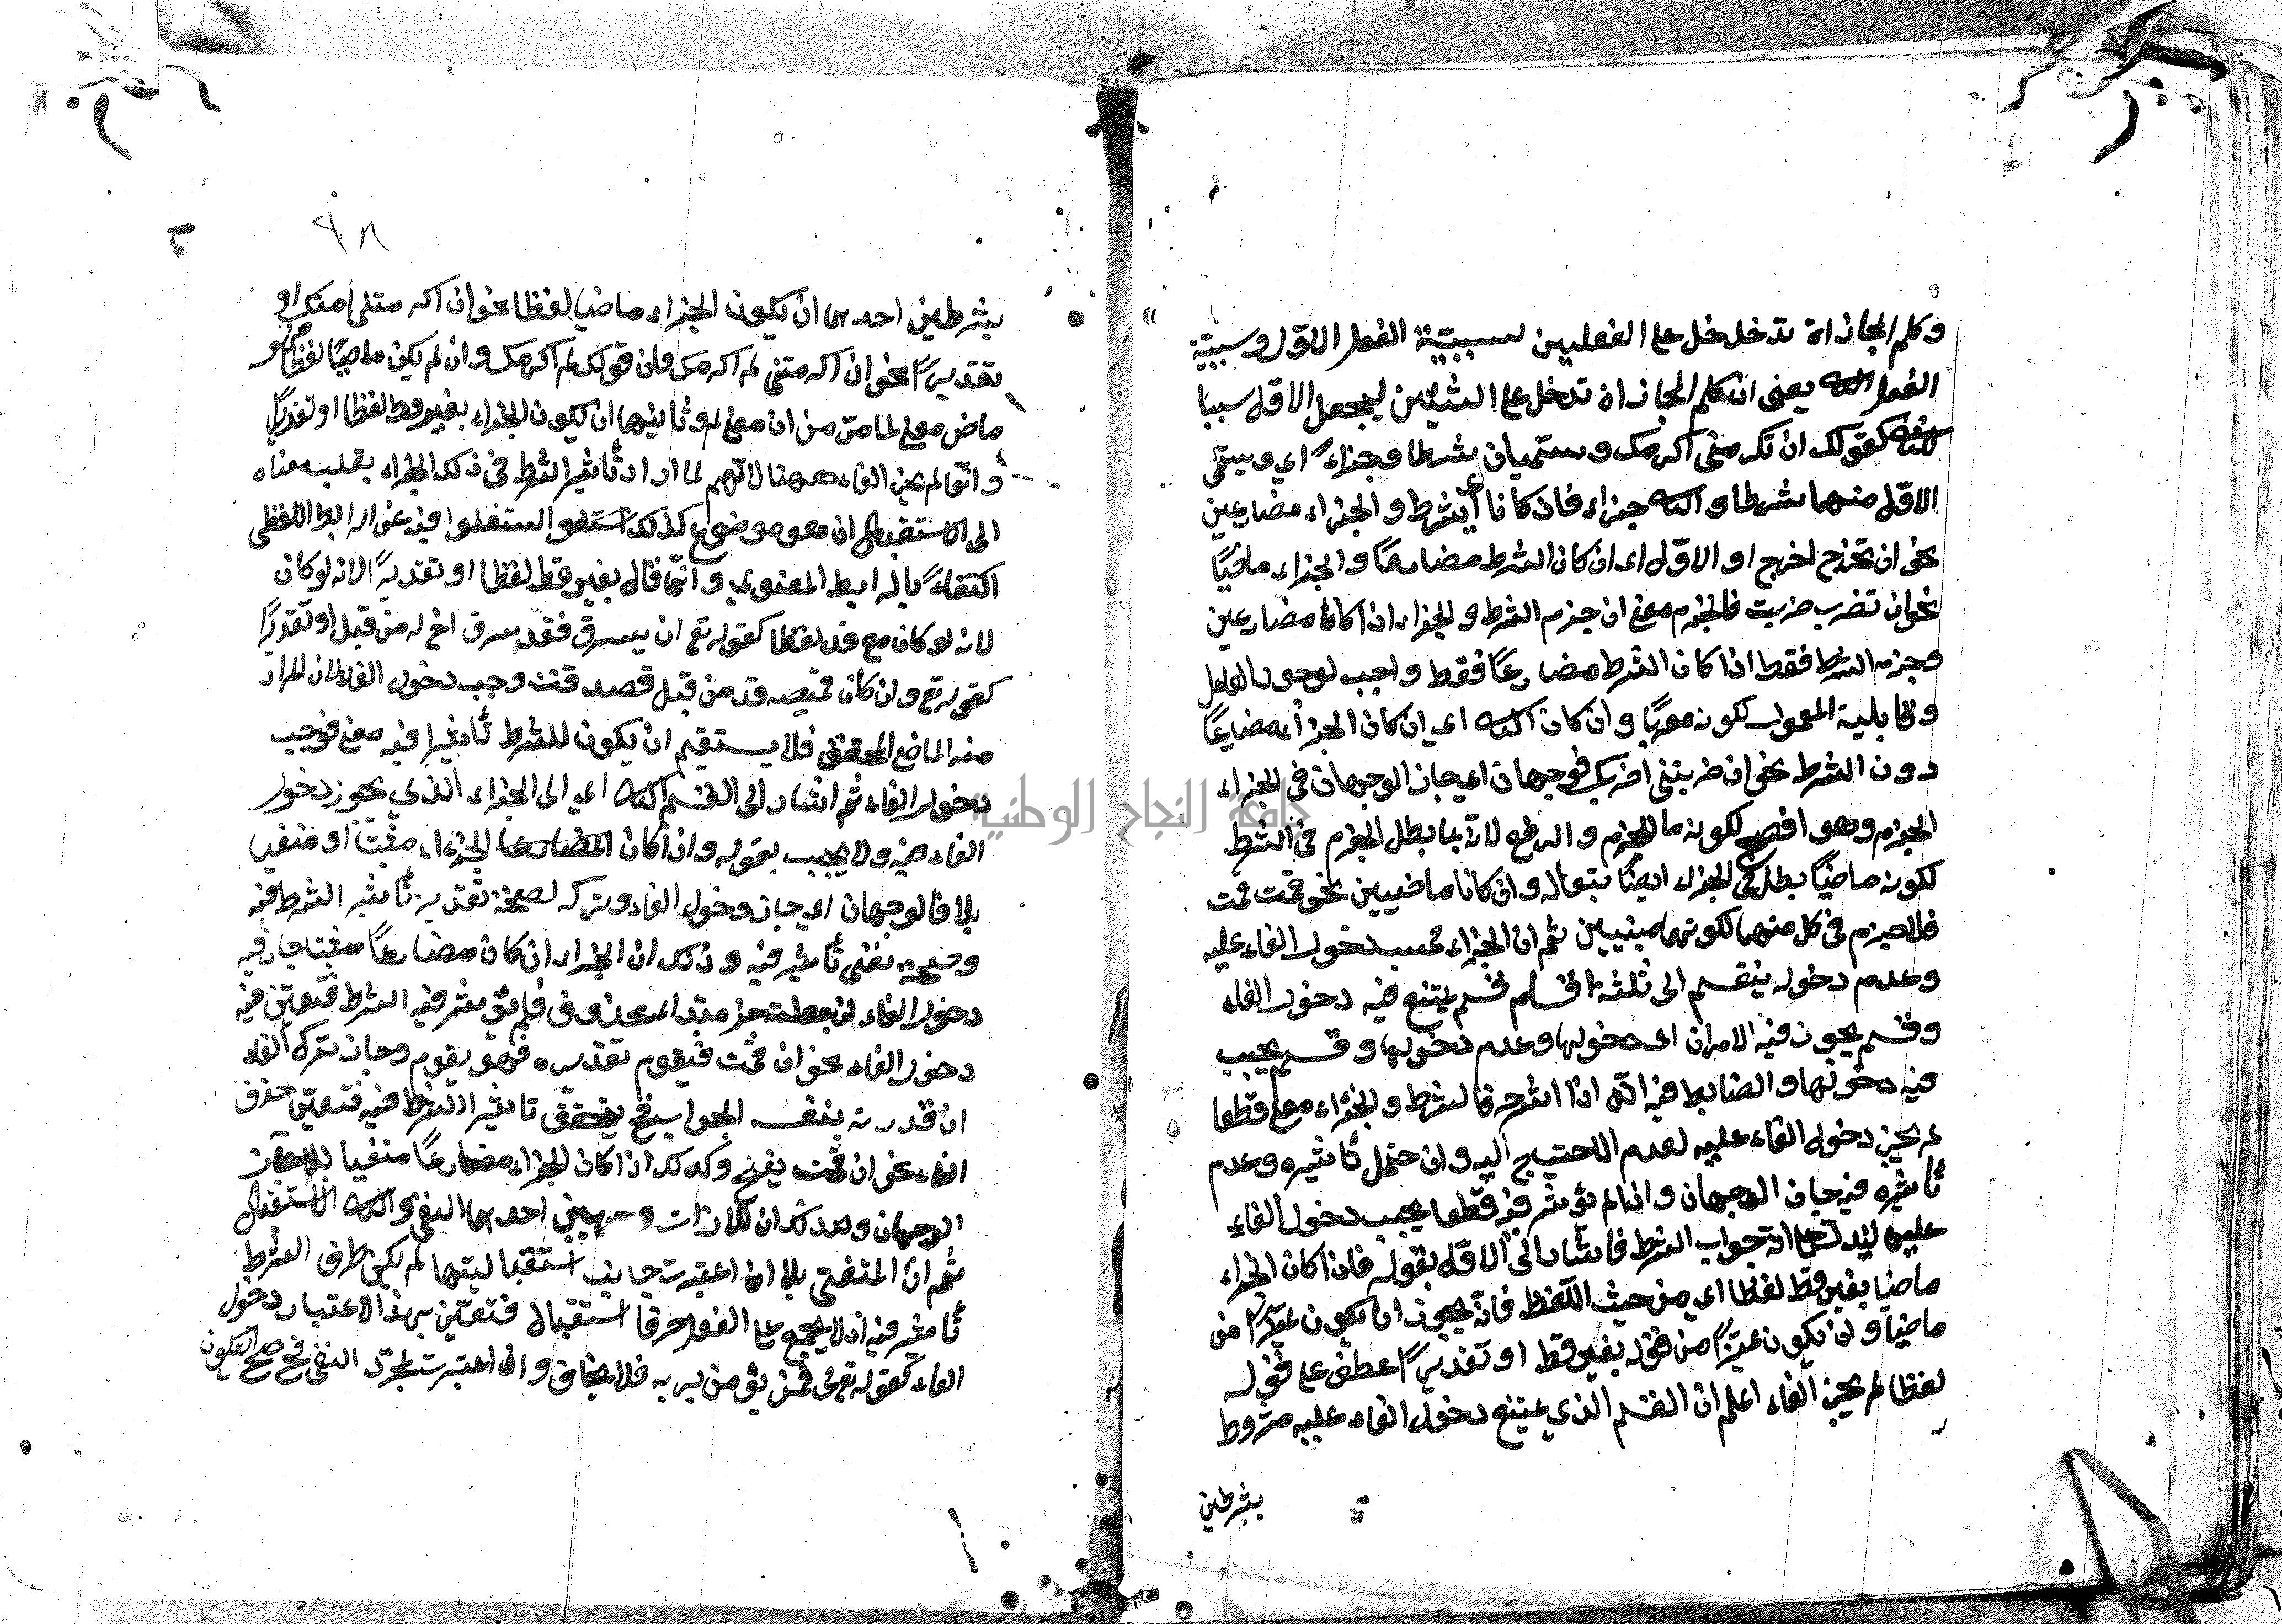 وكلم المجازاة تدخل على الفعلين لسببية الفعل الاول وسببية
الفعل الثاني يعنى ان كلم المجازاة تدخل على الشيئين ليجعل الاول سببا
للثاني كقولك ان تكرمنى اكرمك وسميان شرطا وجزاء اي ويسمى
الاول منهما شرطا والثاني جزاء فان كانا اي الشرط والجزاء مضارعين
نحو ان تخرج اخرج او الاول اى ان كان الشرط مضارعا والجزاء ماضيا
نحو ان تضرب ضربت فالجزم معنى ان جزم الشرط والجزاء اذا كانا مضارعين
وجزم الشرط فقط اذا كان الشرط مضارعا فقط واجب لوجود العامل
وقابلية المعمول لكونه معربا وان كان الثاني اى ان كان الجزاء مضارعا
دون الشرط نحو ان ضربتنى اضربك فوجهان اي جاز الوجهان فى الجزاء
الجزم وهو افصح لكونه للجزم والرفع لانه لما بطل الجزم فى الشرط
لكونه ماضيا بطل فى الجزاء ايضا بتعاله وان كانا ماضيين نحو قمت قمت
فلا جزم فى كل منهما لكونهما مبنيين ثم ان الجزاء بحسب دخول الفاء عليه
وعدم دخوله ينقسم الى ثلثة اقسام قسم يمتنع فيه دخول الفاء
وقسم يجوز فيه الامران اى دخولها وعدم دخولها وقسم يجب
فيه دخولها والضابط فيه انه اذا اثر حرف الشرط والجزاء معنى قطعا
لم يجز دخول الفاء عليه لعدم الاحتياج اليه وان احتمل تأثيره وعدم
تأثيره فيه جاز الوجهان وان لم يؤثر فيه قطعا يجب دخول الفاء
عليه ليدل على انه جواب الشرط فاشار الى الاول بقوله فاذا كان الجزاء
ماضيا بغير قد لفظا اى من حيث اللفظ فانه يجوز ان يكون تميزا من
ماضيا وان يكون تميزا من قوله بغير قد او تقديرا عطف على قوله
لفظا لم يجز الفاء اعلم ان القسم الذي يمتنع دخول الفاء عليه مشروط
بشرطين
٩٨
بشرطين احدهما ان يكون الجزاء ماضيا لفظا نحو ان اكرمتنى اكرمتك او
تقديرا نحو ان اكرمتنى لم اكرمك فان قولك لم اكرمك وان لم يكن ماضيا لفظا لكنه
ماض معنى لما مر من ان معنى لم وثانيهما ان يكون الجزاء بغير قد لفظا او تقديرا
وانما لم يجز الفاء ههنا لانهم لما ارادوا تأثير الشرط فى ذلك الجزاء بقلب معناه
الى الاستقبال ان هو موضوع كذلك استغنوا فيه عن الرابط اللفظى
اكتفاء بالرابط المعنوي وانما قال بغير قد لفظا او تقديرا لانه لو كان
لانه لو كان مع قد لفظا كقوله تع ان يسرق فقد سرق اخ له من قبل او تقديرا
كقوله تع وان كان قميصه قد من قبل فصدقت وجب دخول الفاء لان المراد
منه الماضى المحقق فلا يستقيم ان يكون للشرط تأثير فيه معنى فوجب
دخول الفاء ثم اشار الى القسم الثاني اي الى الجزاء الذي يجوز دخول
الفاء فيه ولا يجب بقوله وان كان الجزاء مثبتا او منفيا
بلا فالوجهان اى جاز دخول الفاء وتركه لصحة تقدير تأثير الشرط فيه
وصحة نفى تأثيره فيه وذلك ان الجزاء ان كان مضارعا مثبتا جاز فيه
دخول الفاء لان جعلت خبر مبتدا محذوف فلم يؤثر فيه الشرط فتعين فيه
دخول الفاء نحو ان قمت فيقوم تقديره فهو يقوم وجاز ترك الفاء
ان قدرته بنفس الجواب فح يتحقق تأثير الشرط فيه فتعين حذف
الفاء نحو ان قمت يقم وكذلك اذا كان الجزاء مضارعا منفيا بلا جاز
الوجهان وهذا لان للا ذات وجهين احدهما النفى والثاني الاستقبال
ثم ان المنفى بلا ان اعتبرت جانب استقباليتها لم يكن حرف الشرط
تأثير فيه اذ لا يجتمع على الفعل حرفا استقبال فتعين بهذا الاعتبار دخول
الفاء كقوله تعالى فمن يؤمن بربه فلا يخاف وان اعتبرت لمجرد النفى فح صح ليكون
جامعة النجاح الوطنية